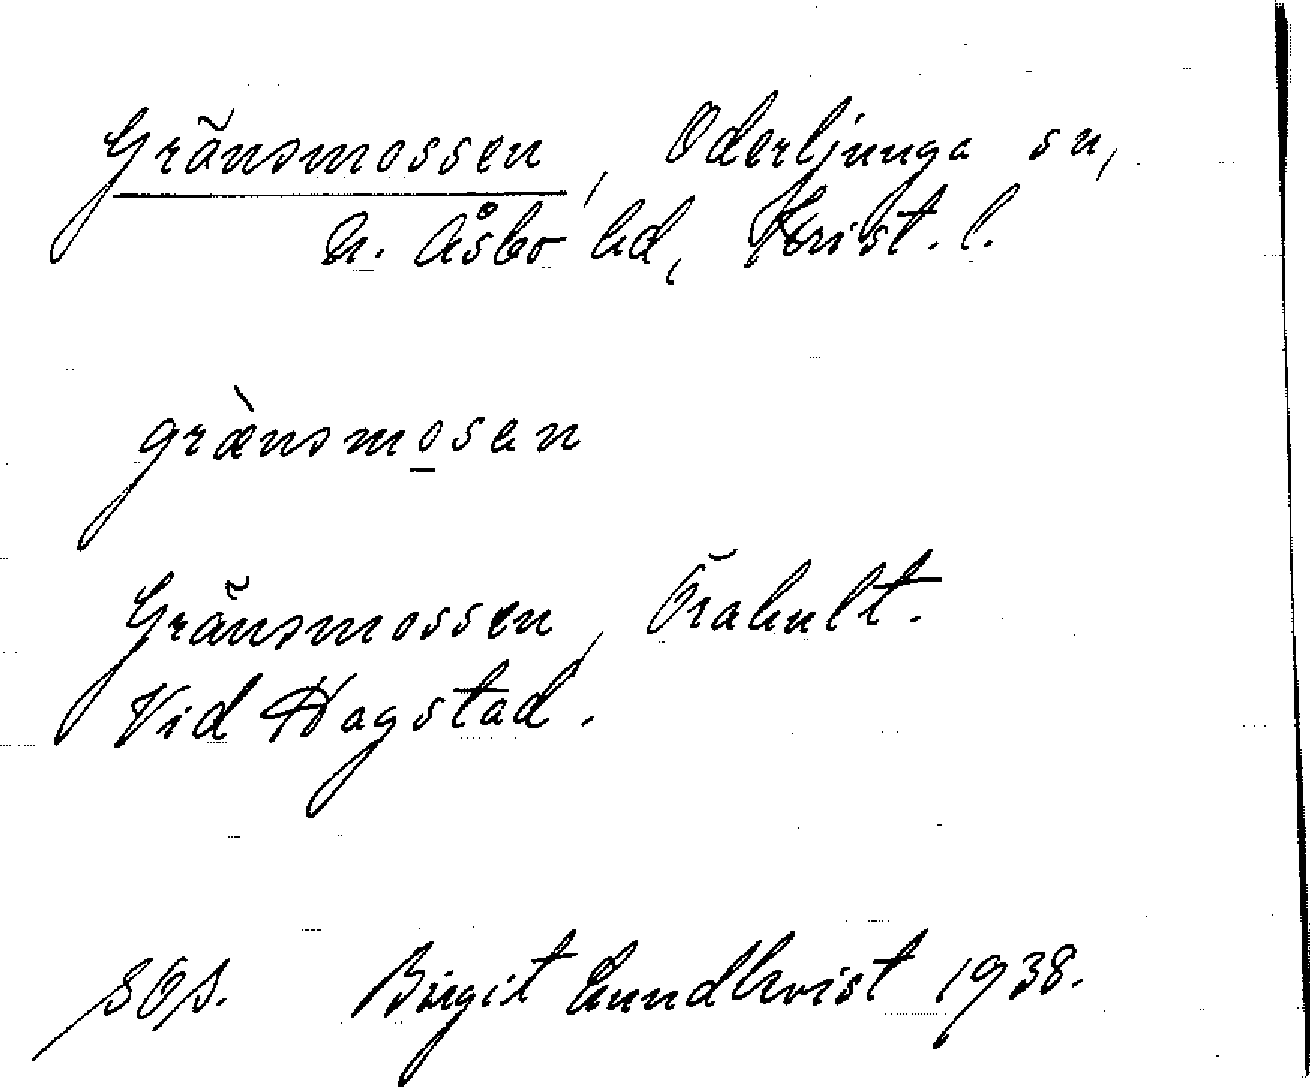 Gränsmossen, Oderljunga sn,
N. Åsbo hd, Krist. l.
grænsmosan
Gränsmossen, Örahult.
Vid Hagstad.
SOS. Birgit Lundkvist 1938.